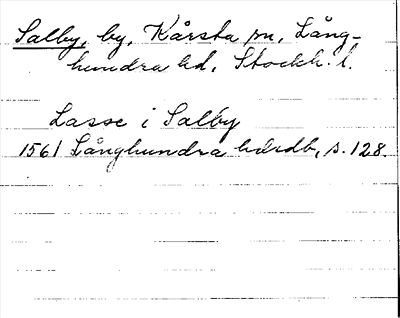 Salby, by, Kårsta sn, Lång-
hundra hd, Stockh. l.
Lasse i Salby
1561 Långhundra hdrdb, s. 128.